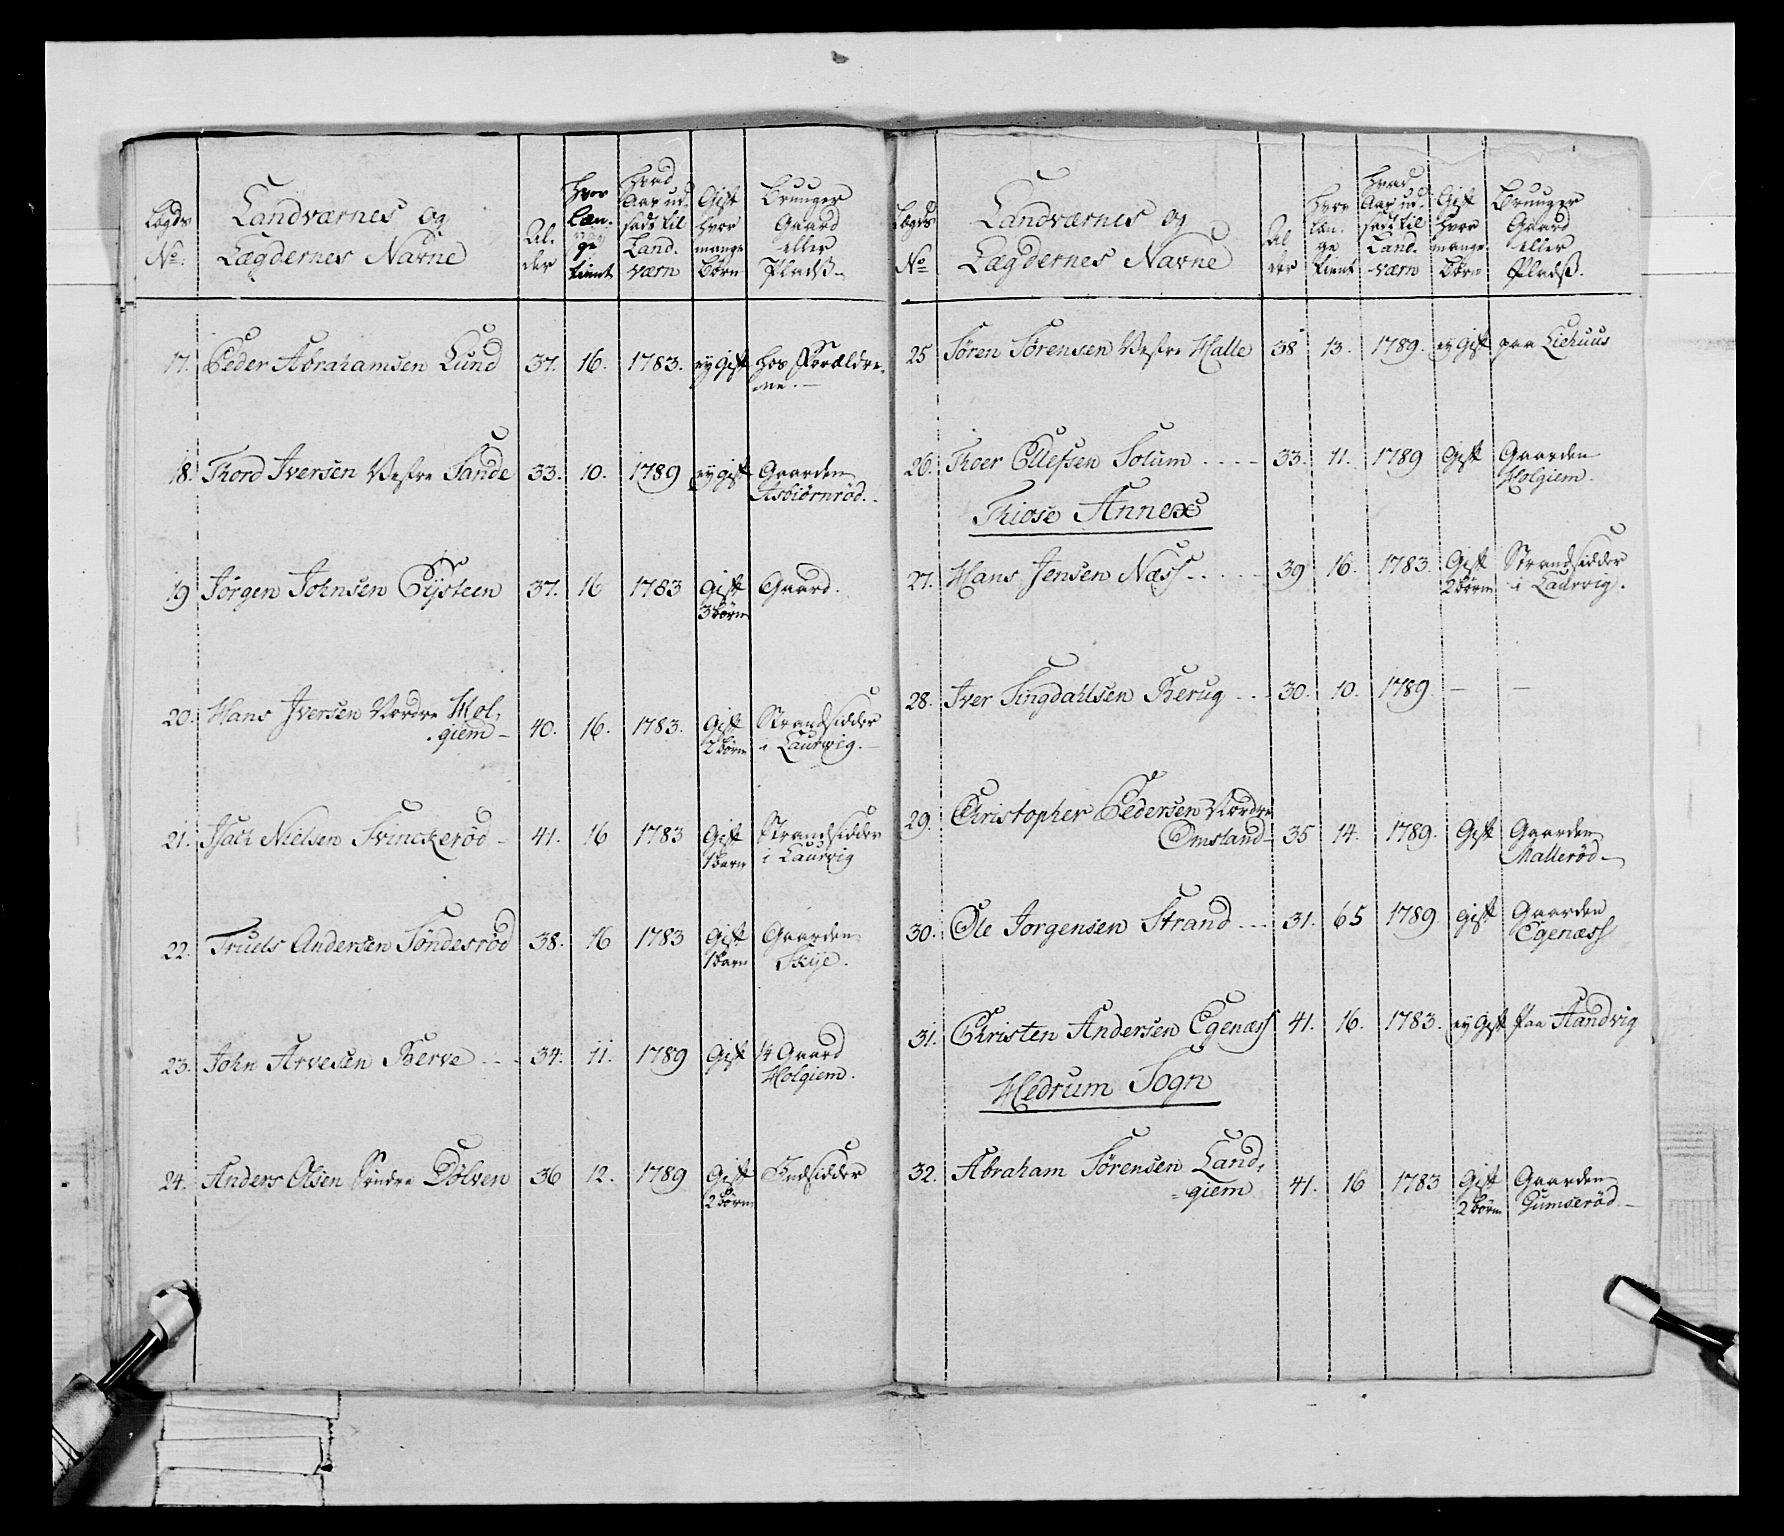 Lægds No. | Landværnes og Lægdernes Navne | Al. der | hvor læn. ge tient | hvad Aar ud. sadt til Land. værn | Gift hvor mange Børn | Bruuger Gaard eller Pladß.
17. Peder Abrahamsen Lund | 37. | 16. | 1783. | ey gift | hos Forældre.
ne.
18. Thord Iversen Vestre Sande | 33. | 10. | 1789 | ey gift | Gaarden
Asbiørnrød.
19 Jørgen Johnsen Øysteen | 37. | 16 | 1783 | Gift | Gaard.
3 børn
20. Hans Iversen Nordre Hol,
giem | 40. | 16. | 1783. | Gift | Strandsidder
2 børn | i Laurvig.
21. Isach Nielsen Svinckerød | 41. | 16 | 1783 | Gift | Strandsidder
1 barn | i Laurvig
22. Truels Andersen Söndesröd | 38. | 16 | 1783 | Gift | Gaarden
1 barn | Skije.
23. John Arvesen Berve | 34. | 11. | 1789 | Gift | 1/4 Gaard
Holgiem.
24. Anders Olsen Søndre Dölven | 36 | 12. | 1789 | Gift | Huusidder
2 børn
Lægds No | Landværnes og Lægdernes Navne | Al der | hvor læn. ge tient | hvad Aar ud. sadt til Land. værn | Gift hvor mange Börn | Bruuger Gaard eller Pladß.
25 Sören Sörensen Vestre Halle | 38 | 13. | 1789. | ey Gift | paa Liehuus
26. Thoer Ellefsen Solum | 33. | 11. | 1789 | Gift | Gaarden
Holgiem.
Thiose Annex
27. Hans Jensen Næss | 39 | 16. | 1783. | Gift | Strandsidder
2 børn | i Laurvig.
28. Iver Tingdahlsen Berug | 30. | 10. | 1789. | — | —
29. Christopher Pedersen Nordre
Omsland | 35 | 14. | 1789. | Gift | Gaarden
Mallerød
30. Ole Jorgensen Strand | 31. | 65 | 1789. | gift | Gaarden
Egenæss
31. Christen Andersen Egenæss | 41. | 16. | 1783. | ey Gift | paa Aandvig
Hedrum Sogn
32. Abraham Sørensen Land,
giem | 41. | 16 | 1783 | Gift | Gaarden
2 børn | Gumserød.